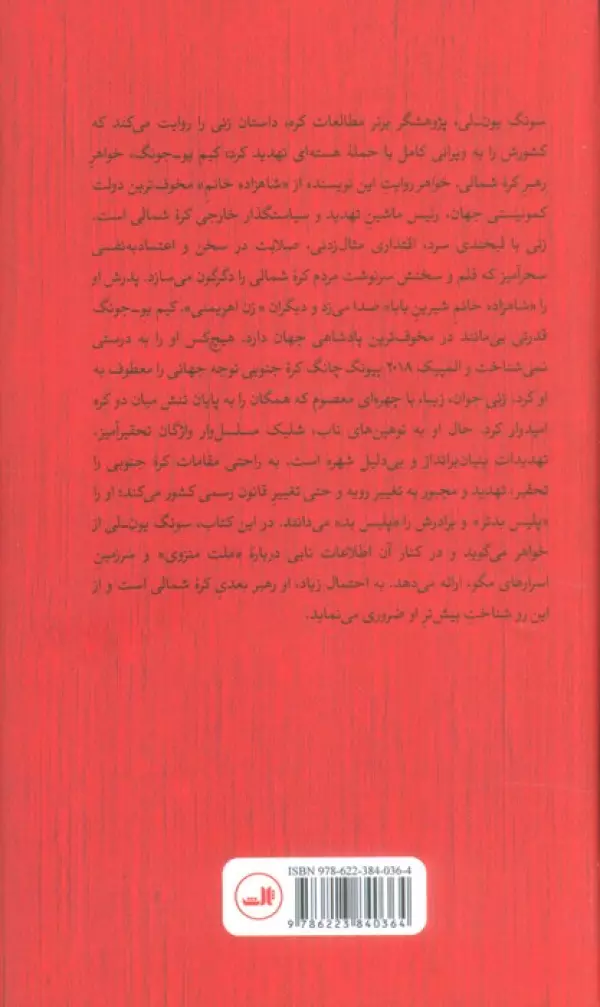 سونگ یون‌ـ‌لی، پژوهشگر برتر مطالعات کره، داستان زنی را روایت می‌کند که
کشورش را به ویرانی کامل با حملهٔ هسته‌ای تهدید کرد: کیم یوـ‌جونگ، خواهرِ
رهبر کرهٔ شمالی. خواهر روایت این نویسنده از «شاهزاده خانمِ» مخوف‌ترین دولت
کمونیستی جهان، رئیس ماشین تهدید و سیاستگذار خارجی کرهٔ شمالی است.
زنی با لبخندی سرد، اقتداری مثال‌زدنی، صلابت در سخن و اعتمادبه‌نفسی
سحرآمیز که قلم و سخنش سرنوشت مردم کرهٔ شمالی را دگرگون می‌سازد. پدرش او
را «شاهزاده خانم شیرین بابا» صدا می‌زد و دیگران «زن اهریمنی». کیم یوـ‌جونگ
قدرتی بی‌مانند در مخوف‌ترین پادشاهی جهان دارد. هیچ‌کس او را به درستی
نمی‌شناخت و المپیک ۲۰۱۸ پیونگ چانگ کرهٔ جنوبی توجه جهانی را معطوف به
او کرد. زنی جوان، زیبا، با چهره‌ای معصوم که همگان را به پایان تنش میان دو کره
امیدوار کرد. حال او به توهین‌های ناب، شلیک مسلسل‌وار واژگان تحقیرآمیز،
تهدیدات بنیان‌برانداز و بی‌دلیل شهره است. به راحتی مقامات کرهٔ جنوبی را
تحقیر، تهدید و مجبور به تغییر رویه و حتی تغییرِ قانون رسمی کشور می‌کند؛ او را
«پلیس بدتر» و برادرش را «پلیس بد» می‌دانند. در این کتاب، سونگ یون‌ـ‌لی از
خواهر می‌گوید و در کنار آن اطلاعات نابی دربارهٔ «ملت منزوی» و سرزمین
اسرارهای مگو، ارائه می‌دهد. به احتمال زیاد، او رهبر بعدیِ کرهٔ شمالی است و از
این رو شناختِ بیش‌ترِ او ضروری می‌نماید.
ISBN 978-622-384-036-4
ثالث
9 786223 840364